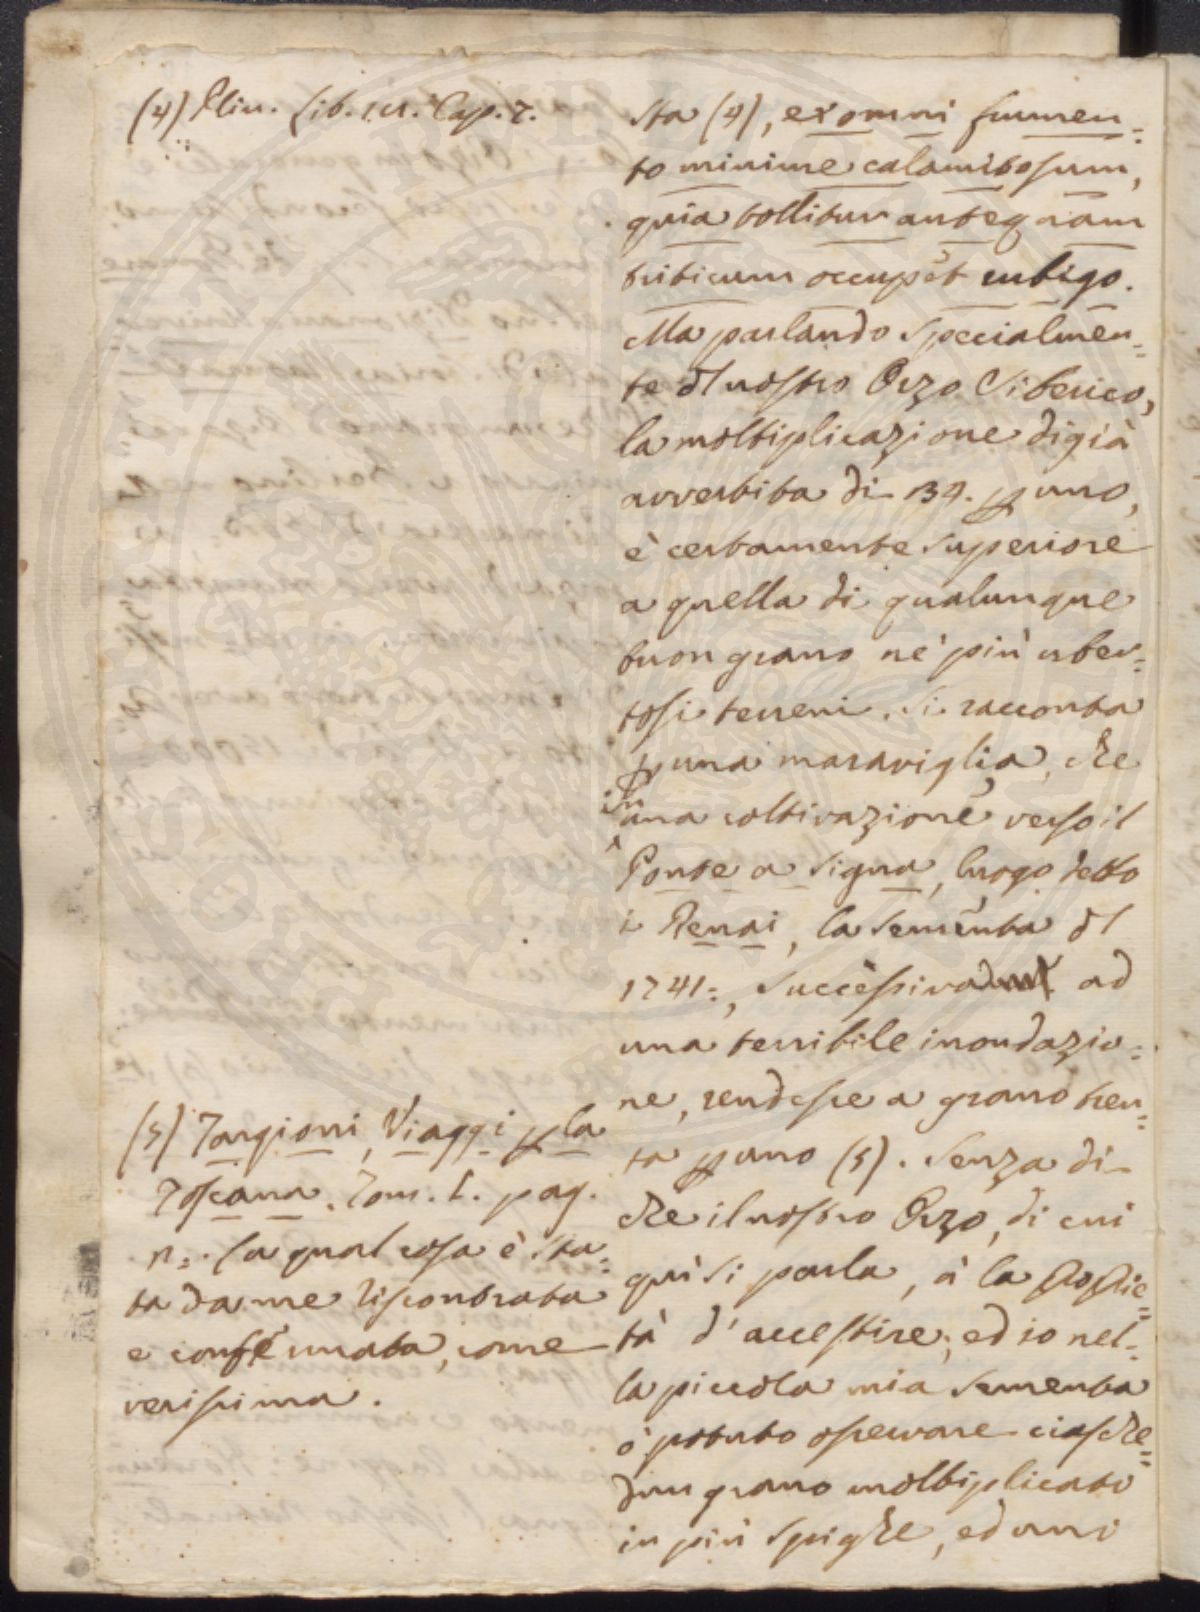 (4) Plin. Lib. 18. Cap. 7.
sta (4), ex omni frumen=
to minime calamitosum,
quia tollitur antequam
triticum occupet rubigo.
Ma parlando specialmen=
te dl nostro Orzo Siberico,
la moltiplicazione digià
avvertita di 34. p uno,
è certamente superiore
a quella di qualunque
buon grano nè più uber=
tosi terreni. Si racconta
p una maraviglia, che
in una coltivazione verso il
Ponte a Signa, luogo detto
i Renai, la sementa dl
1741:, successiva ad
una terribile inondazio=
ne, rendesse a grano tren=
ta p uno (5). Senza di
che il nostro Orzo, di cui
quì si parla, à la
tà d'accestire; ed io nel=
la piccola mia sementa
ò potuto osservare ciasche=
dun grano moltiplicato
in più spighe, ed anni
(5) Targioni, Viaggi p la
Toscana. Tom. I. pag.
n:. la qual cosa è sta=
ta da me riscontrata
e confermata, come
verissima.